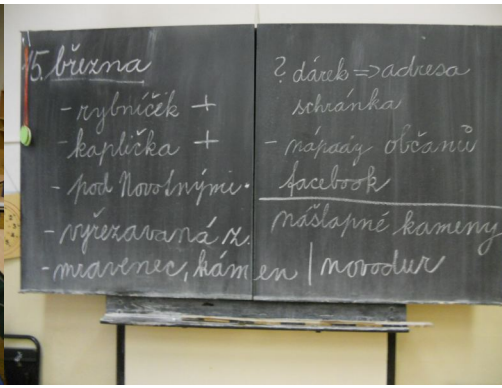 15. března
- rybníček +
- kaplička +
- pod Novotnými.
- vyřezavaná z.
- mravenec, kámen | novodur
? dárek => adresa
schránka
- nápady občanů
facebook
nášlapné kameny